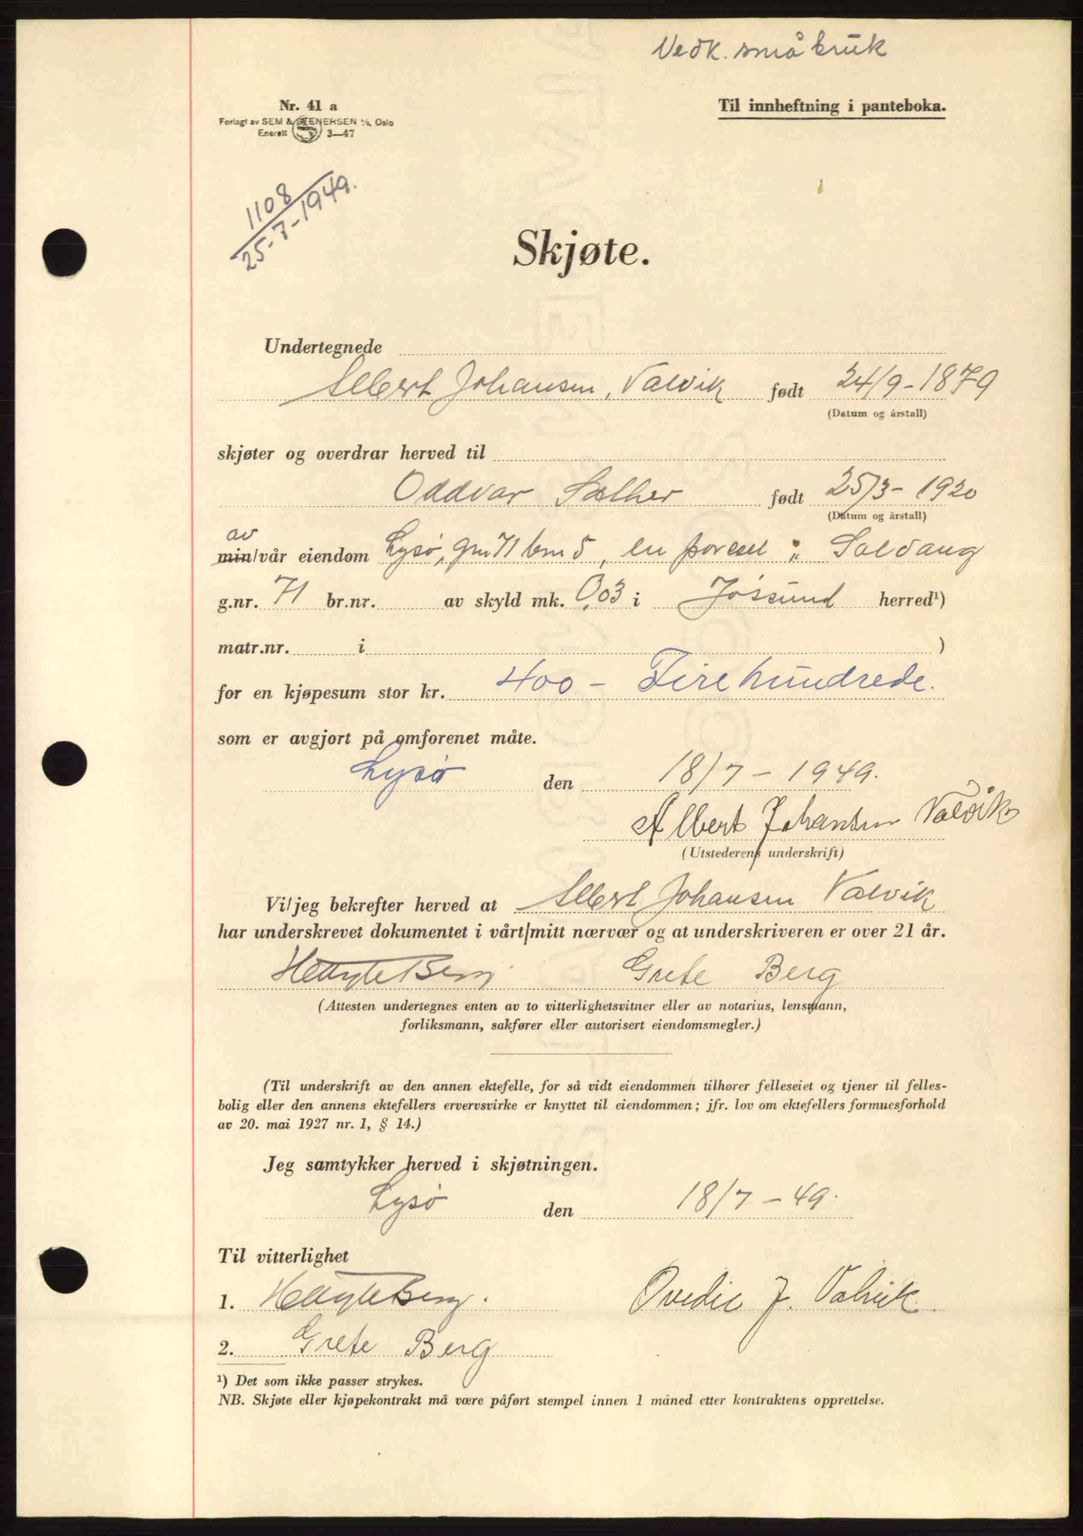 Vedk. småbruk
Nr. 41 a
Til innheftning i panteboka.
Forlagt av SEM & STENERSEN A/S, Oslo
Enerett 3—47
1108
25-7-1949.
Skjøte.
Undertegnede
Albert Johansen, Valvik født 24/9-1879
(Datum og årstall)
skjøter og overdrar herved til
Oddvar Sæther født 25/3-1920
(Datum og årstall)
av
min/vår eiendom Lysø, gnr 71 bnr 5, en parsel " Solvang
g.nr. 71 br.nr. av skyld mk. 0,03 i Jøssund herred¹)
matr.nr. i )
for en kjøpesum stor kr. 400 - Firehundrede.
som er avgjort på omforenet måte.
Lysø den 18/7-1949.
Albert Johansen Valvik
(Utstederens underskrift)
Vi/jeg bekrefter herved at Albert Johansen Valvik
har underskrevet dokumentet i vårt/mitt nærvær og at underskriveren er over 21 år.
Berg Grete Berg
(Attesten undertegnes enten av to vitterlighetsvitner eller av notarius, lensmann,
forliksmann, sakfører eller autorisert eiendomsmegler.)
(Til underskrift av den annen ektefelle, for så vidt eiendommen tilhører felleseiet og tjener til felles-
bolig eller den annens ektefellers ervervsvirke er knyttet til eiendommen; jfr. lov om ektefellers formuesforhold
av 20. mai 1927 nr. 1, § 14.)
Jeg samtykker herved i skjøtningen.
Lysø den 18/7-49.
Til vitterlighet
1. Berg. J. Valvik.
2. Grete Berg
¹) Det som ikke passer strykes.
NB. Skjøte eller kjøpekontrakt må være påført stempel innen 1 måned etter kontraktens opprettelse.